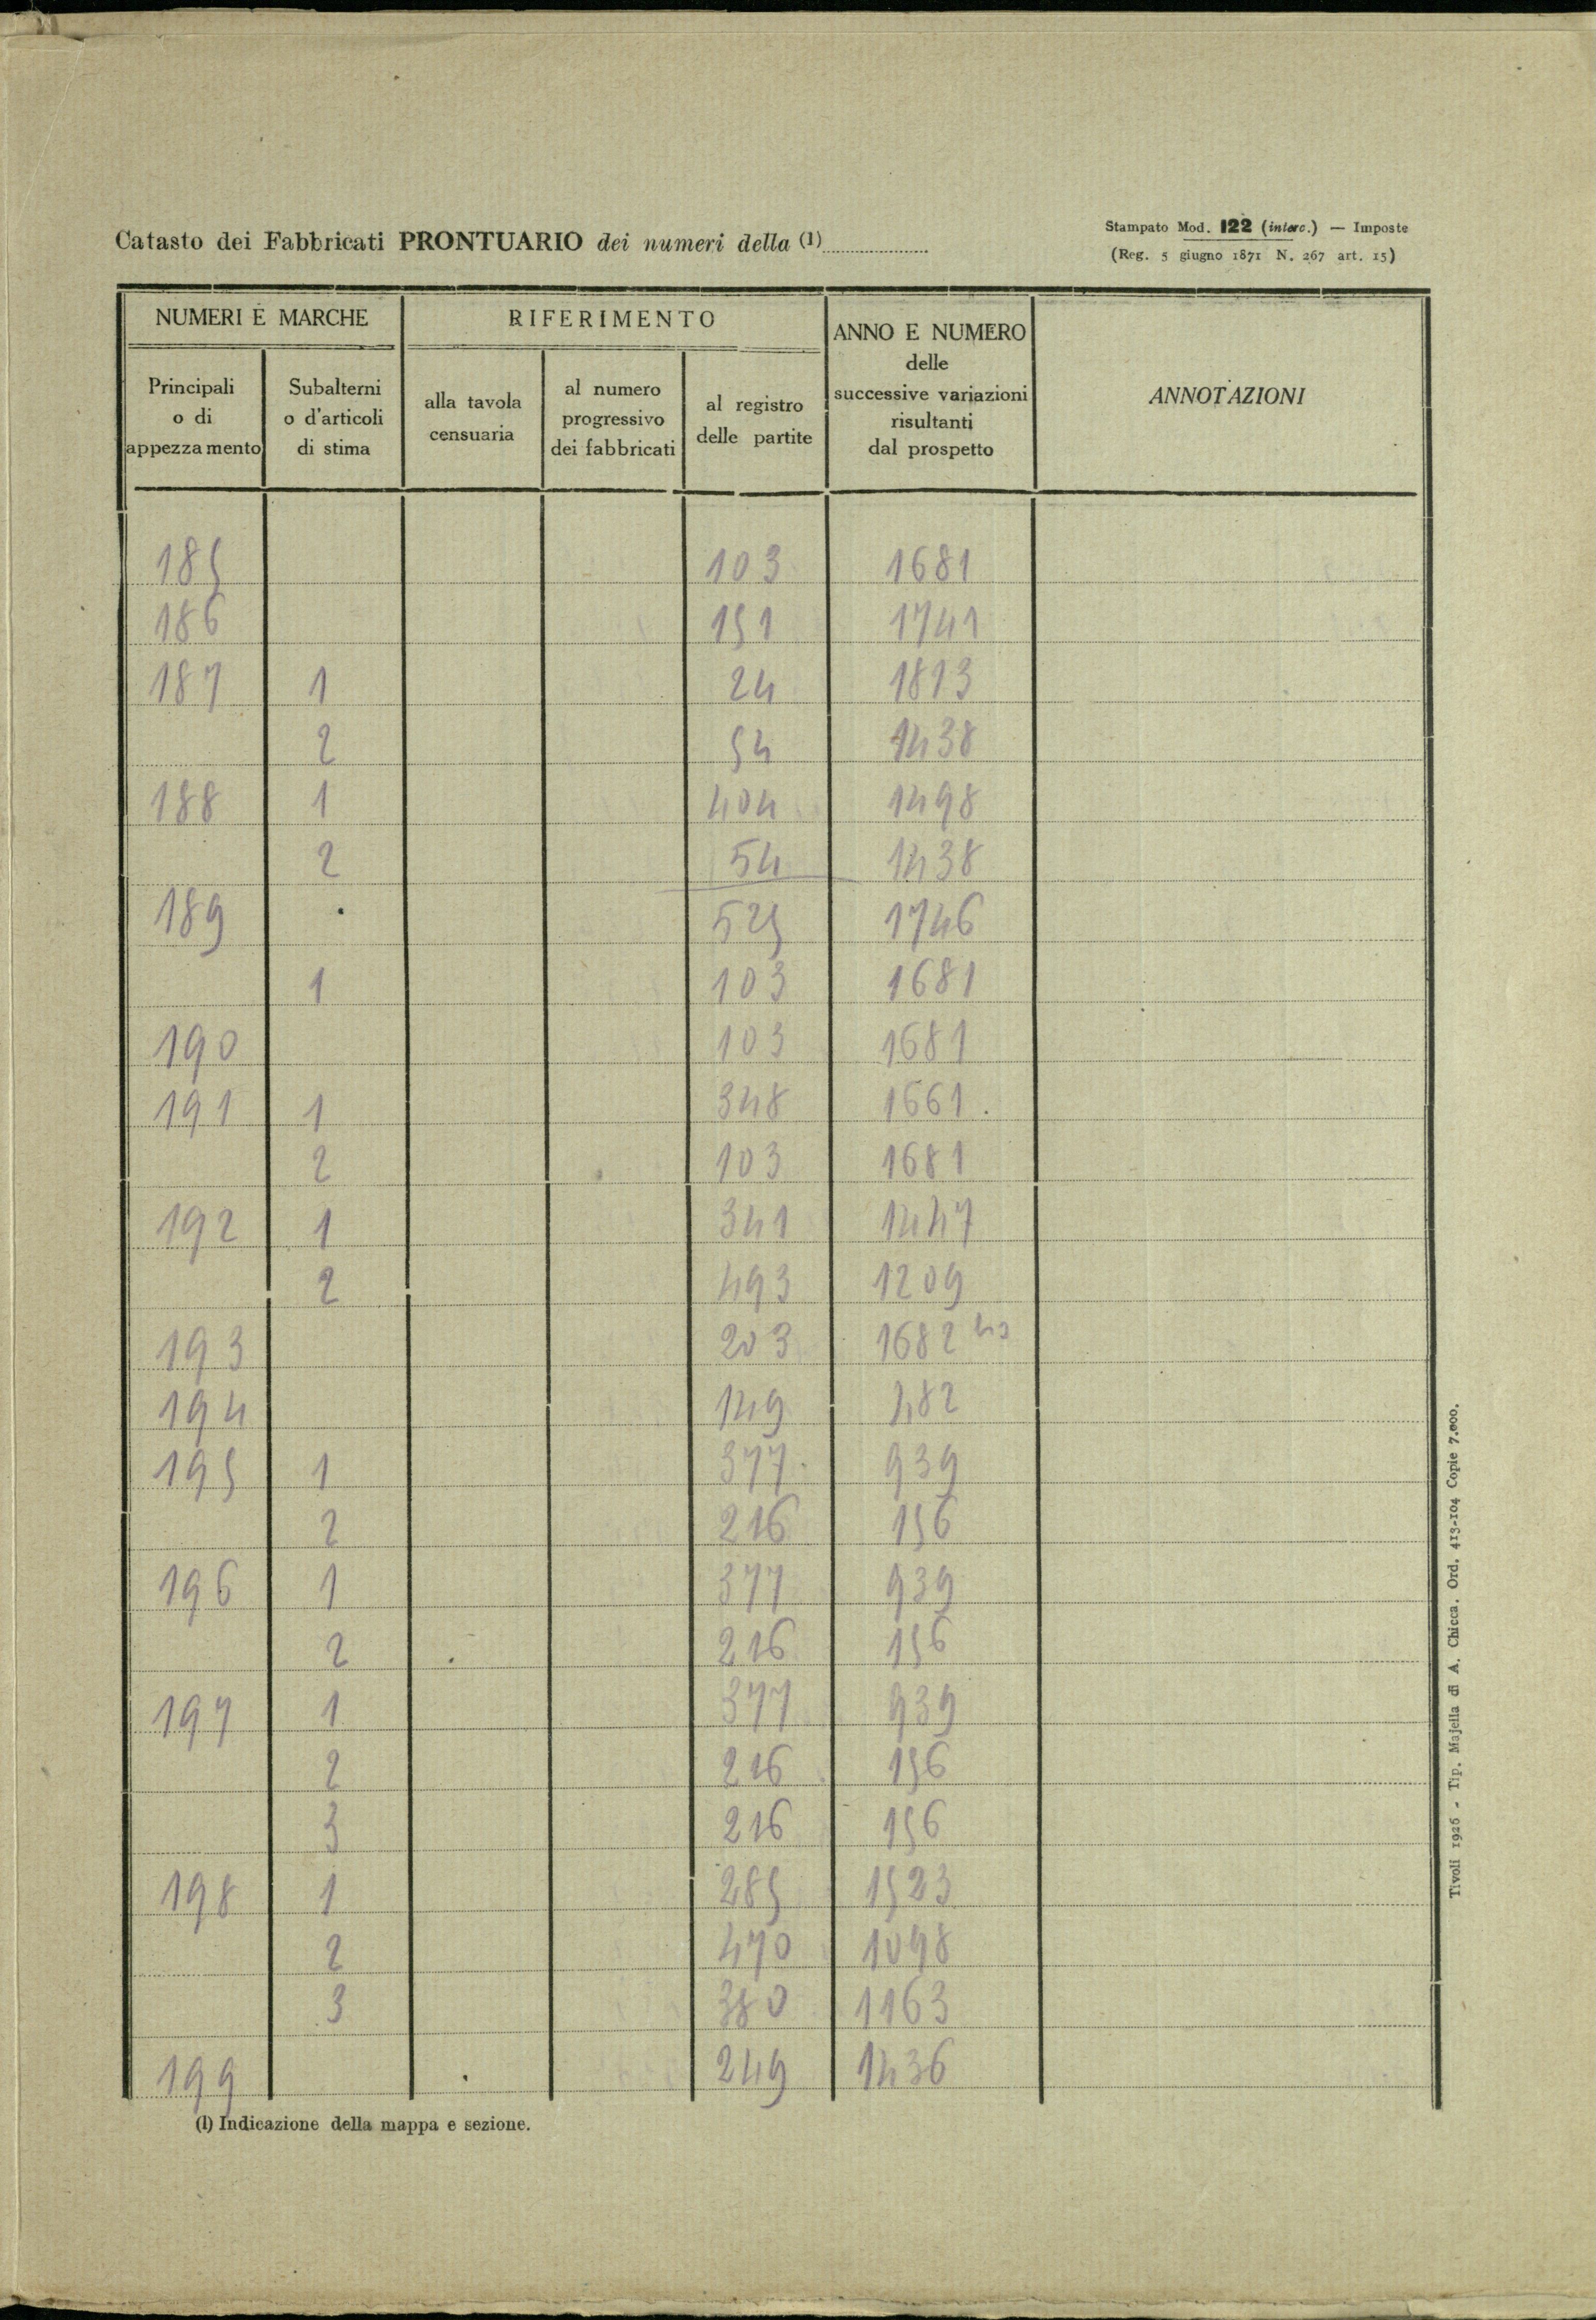 Catasto dei Fabbricati PRONTUARIO dei numeri della (1)
Stampato Mod. 122 (interc.) — Imposte
(Reg. 5 giugno 1871 N. 267 art. 15)
NUMERI E MARCHE
RIFERIMENTO
ANNO E NUMERO
delle
successive variazioni
risultanti
dal prospetto
ANNOTAZIONI
Principali
o di
appezzamento
Subalterni
o d'articoli
di stima
alla tavola
censuaria
al numero
progressivo
dei fabbricati
al registro
delle partite
185 103 1681
186 151 1741
187 1 24 1813
2 54 1438
188 1 404 1498
2 54 1438
189 525 1746
1 103 1681
190 103 1681
191 1 348 1661.
2 103 1681
192 1 341 1447
2 493 1209
193 203 1682
194 149 482
195 1 377 939
2 216 156
196 1 377 939
2 216 156
197 1 377 939
2 216 156
3 216 156
198 1 285 1523
2 470 1098
3 380 1163
199 249 1436
(1) Indicazione della mappa e sezione.
Tivoli 1926 - Tip. Majella di A. Chicca. Ord. 413-104 Copie 7.000.